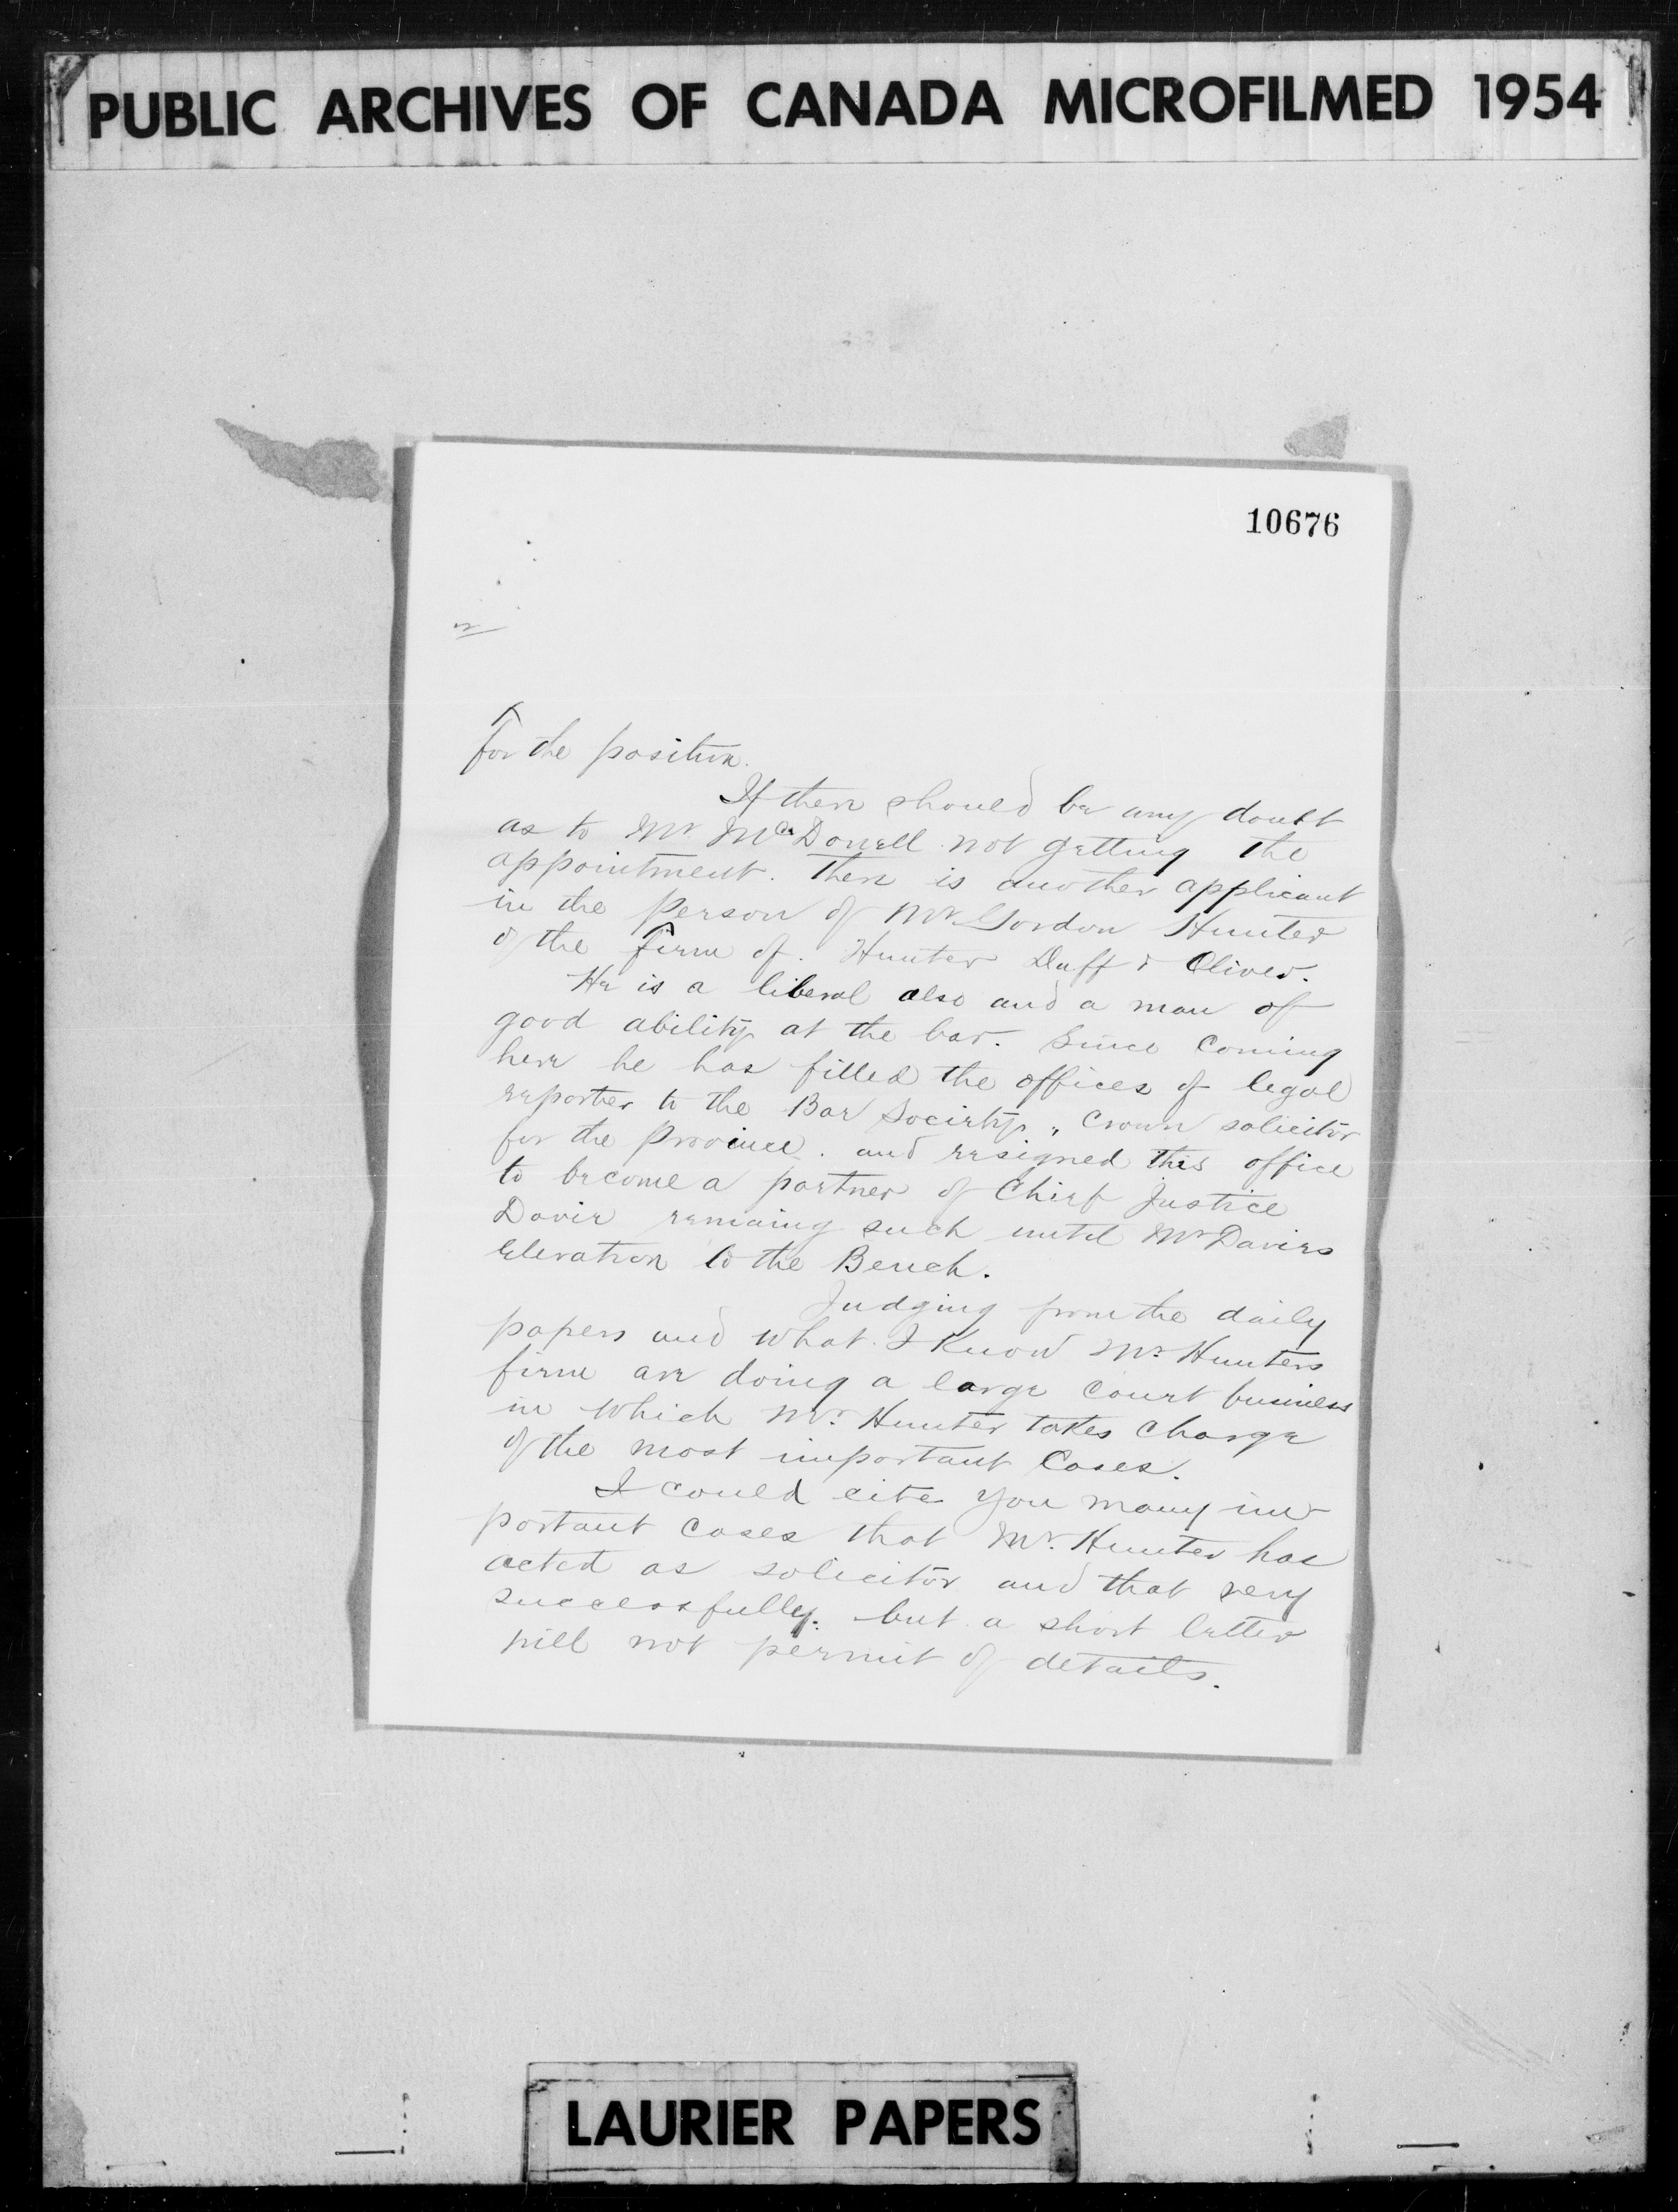 PUBLIC ARCHIVES OF CANADA MICROFILMED 1954
10676
2
for the position.
If there should be any doubt
as to Mr McDonell not getting the
appointment. There is another applicant
in the person of Mr Gordon Hunter
of the firm of. Hunter Duff & Oliver.
He is a liberal also and a man of
good ability at the bar. Since coming
here he has filled the offices of legal
reporter to the Bar Society, Crown solicitor
for the Province. and resigned this office
to become a partner of Chief Justice
Davie remaing such until Mr Davies
Elevation to the Bench.
Judging from the daily
papers and what I know Mr Hunters
firm are doing a large court business
in which Mr. Hunter takes charge
of the most important Cases.
I could cite you many im-
portant cases that Mr. Hunter has
acted as solicitor and that very
successfully. but a short letter
will not permit of details.
LAURIER PAPERS